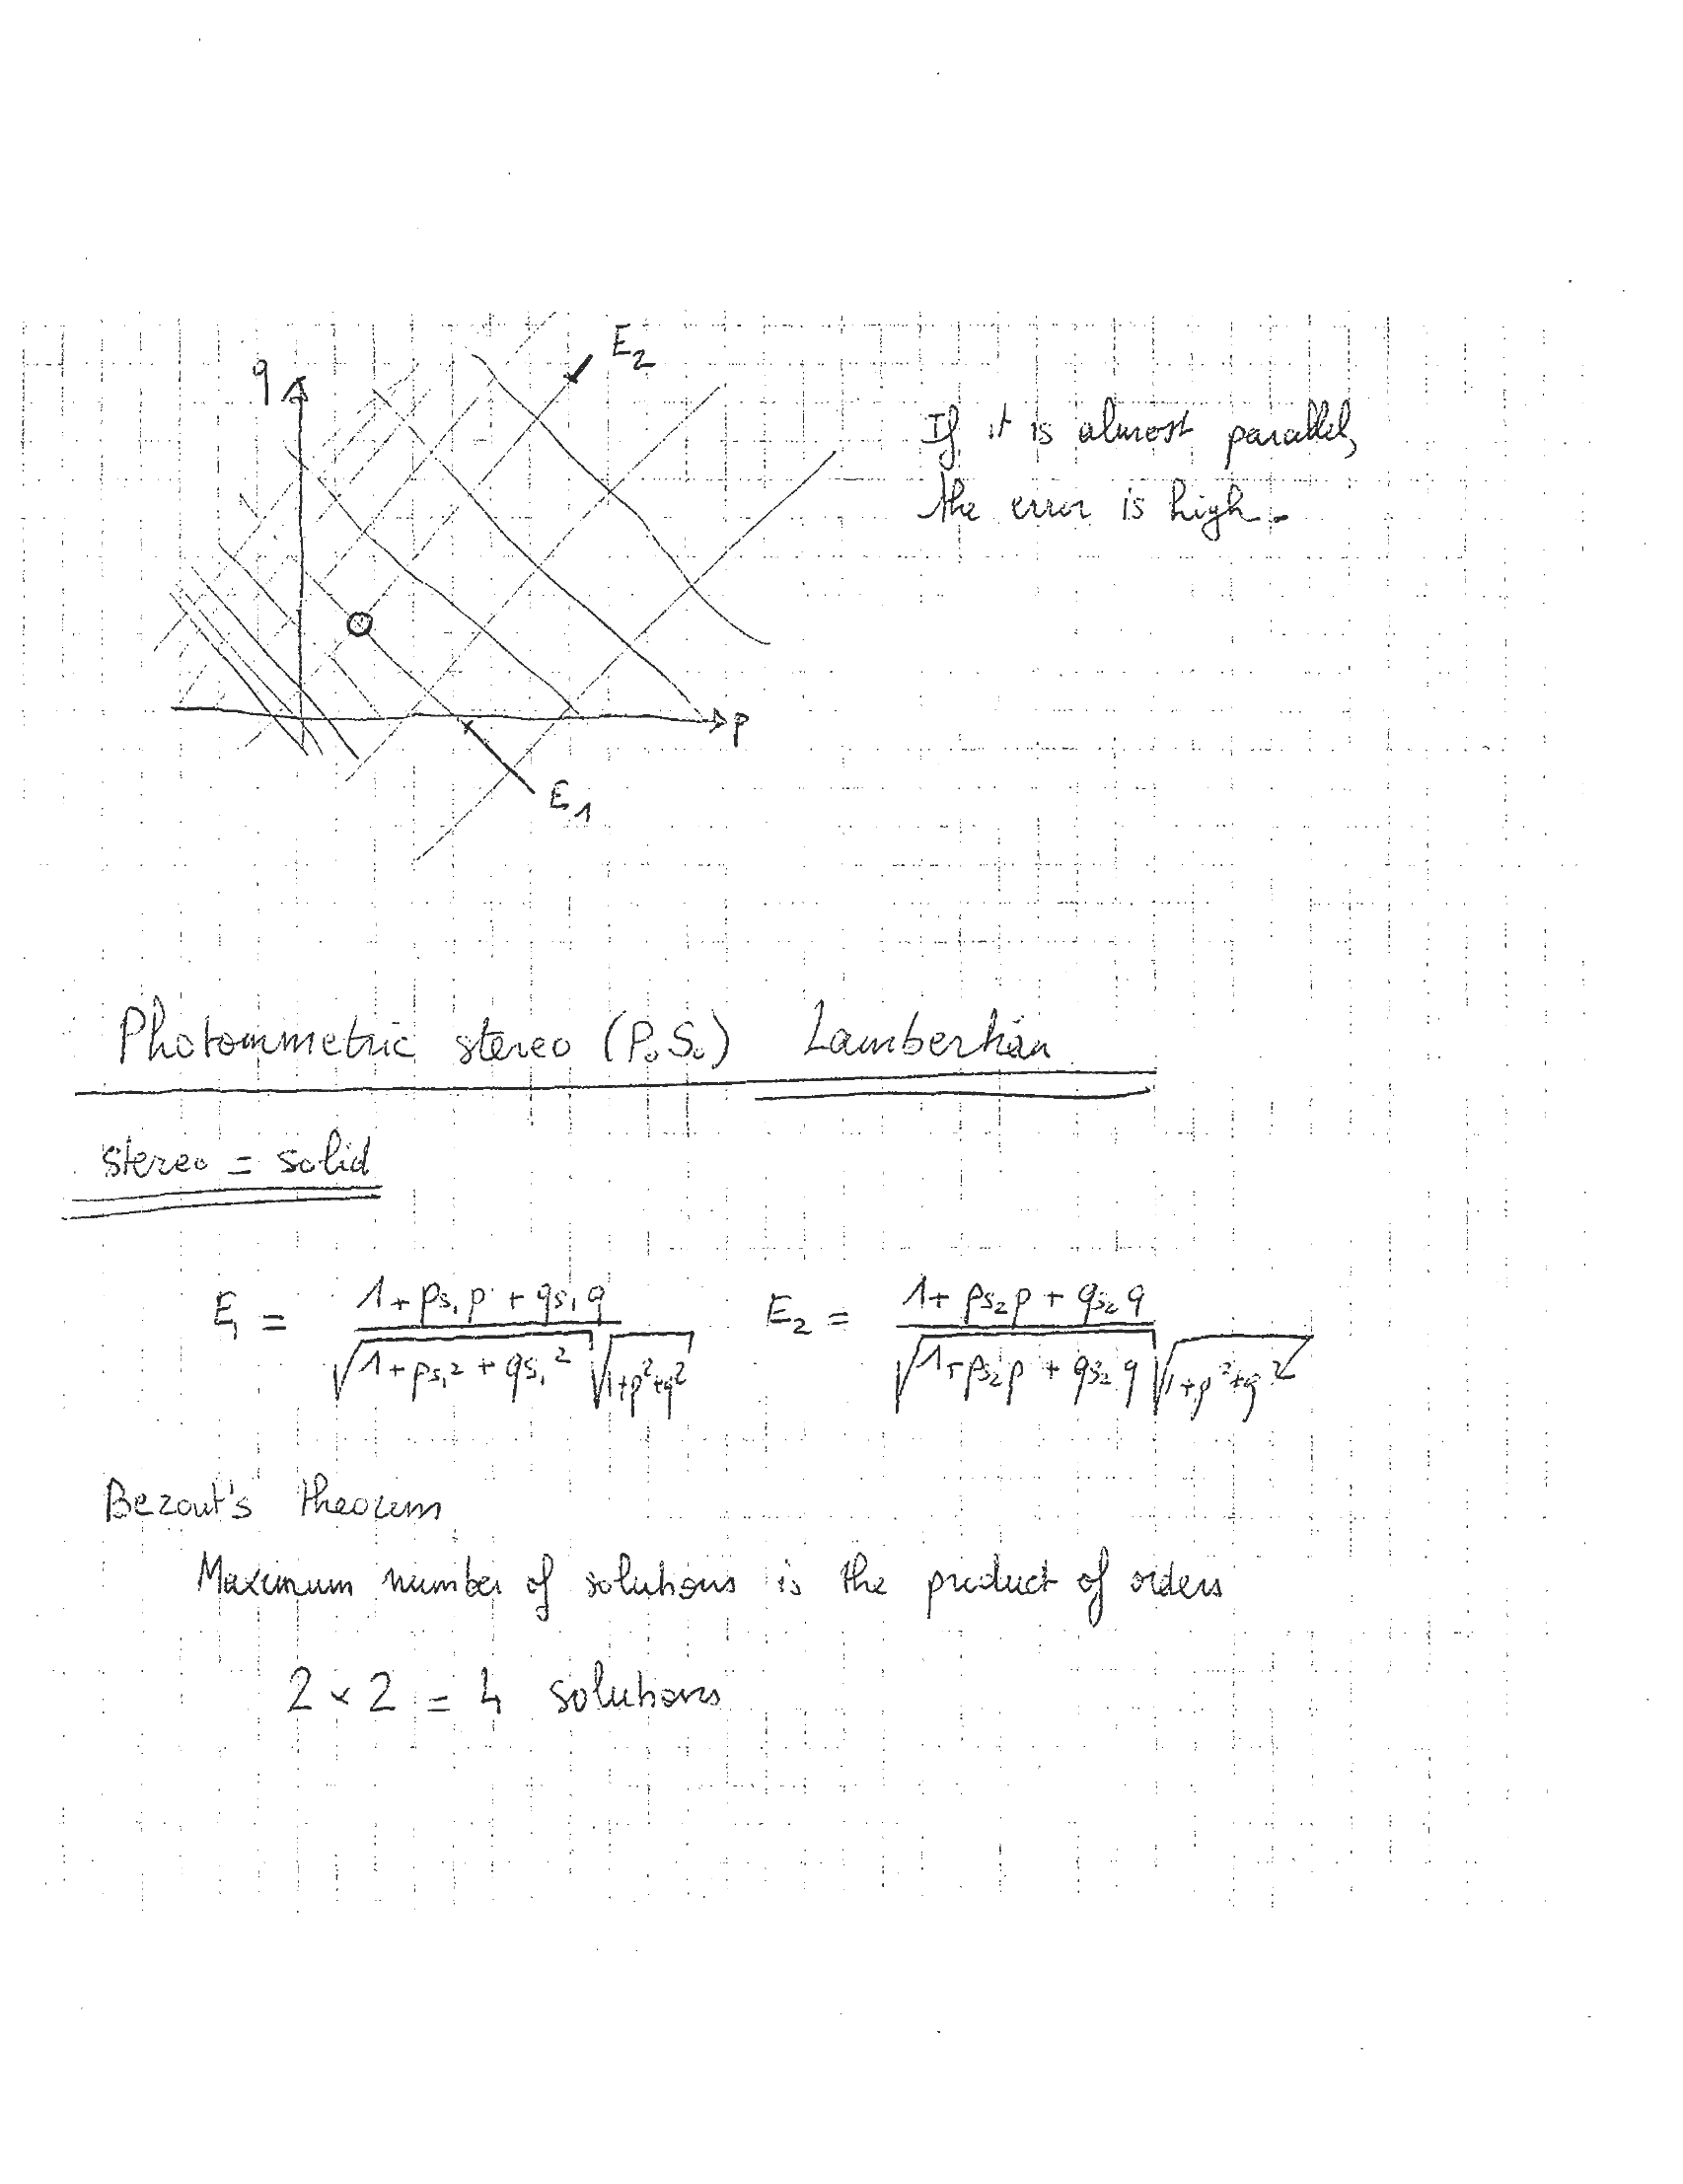 q
E₂
If it is almost parallel,
the error is high.
p
E₁
Photommetric stereo (P.S.) Lambertian
stereo = solid
E₁ = (1 + ps₁p + qs₁q) / (√(1 + ps₁² + qs₁²) √(1+p²+q²))   E₂ = (1 + ps₂p + qs₂q) / (√(1 + ps₂p + qs₂q) √(1+p²+q²))
Bezout's theorem
Maximum number of solutions is the product of orders
2 × 2 = 4 solutions